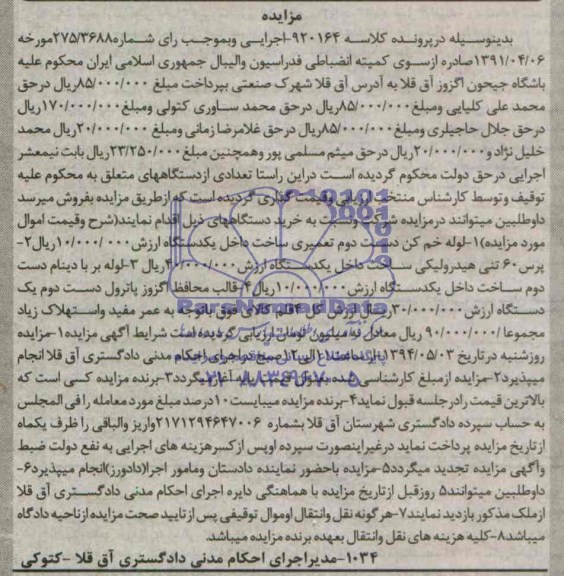 مزایده
بدینوسیله درپرونده کلاسه ۹۲۰۱۶۴-اجرایی وبموجب رای شماره۲۷۵/۳۶۸۸مورخه
۱۳۹۱/۰۴/۰۶صادره ازسوی کمیته انضباطی فدراسیون والیبال جمهوری اسلامی ایران محکوم علیه
باشگاه جیحون اگزوز آق قلا به آدرس آق قلا شهرک صنعتی بپرداخت مبلغ ۸۵/۰۰۰/۰۰۰ریال درحق
محمد علی کلیایی ومبلغ۸۵/۰۰۰/۰۰۰ریال درحق محمد ساوری کتولی ومبلغ۱۷۰/۰۰۰/۰۰۰ریال
درحق جلال حاجیلری ومبلغ۸۵/۰۰۰/۰۰۰ریال درحق غلامرضا زمانی ومبلغ ۲۰/۰۰۰/۰۰۰ریال محمد
خلیل نژاد و۲۰/۰۰۰/۰۰۰ریال درحق میثم مسلمی پور وهمچنین مبلغ۲۳/۲۵۰/۰۰۰ریال بابت نیمعشر
اجرایی درحق دولت محکوم گردیده است دراین راستا تعدادی ازدستگاههای متعلق به محکوم علیه
توقیف وتوسط کارشناس منتخب ارزیابی وقیمت گذاری گردیده است که ازطریق مزایده بفروش میرسد
داوطلبین میتوانند درمزایده شرکت ونسبت به خرید دستگاههای ذیل اقدام نمایند(شرح وقیمت اموال
مورد مزایده)۱-لوله خم کن دست دوم تعمیری ساخت داخل یکدستگاه ارزش۱۰/۰۰۰/۰۰۰ریال۲-
پرس ۶۰ تنی هیدرولیکی ساخت داخل یکدستگاه ارزش۴۰/۰۰۰/۰۰۰ریال ۳-لوله بر با دینام دست
دوم ساخت داخل یکدستگاه ارزش۱۰/۰۰۰/۰۰۰ریال۴-قالب محافظ اگزوز پاترول دست دوم یک
دستگاه ارزش۳۰/۰۰۰/۰۰۰ریال ارزش کل ۴قلم کالای فوق باتوجه به عمر مفید واستهلاک زیاد
مجموعا ۹۰/۰۰۰/۰۰۰ ریال معادل نه میلیون تومان ارزیابی گردیده است شرایط آگهی مزایده۱-مزایده
روزشنبه درتاریخ ۱۳۹۴/۰۵/۰۳از ساعت۱۱الی۱۲صبح دراجرای احکام مدنی دادگستری آق قلا انجام
میپذیرد۲-مزایده ازمبلغ کارشناسی شده آغاز میگردد۳-برنده مزایده کسی است که
بالاترین قیمت رادرجلسه قبول نماید۴-برنده مزایده میبایست۱۰درصد مبلغ مورد معامله رافی المجلس
به حساب سپرده دادگستری شهرستان آق قلا بشماره ۲۱۷۱۲۹۴۶۴۷۰۰۶واریز والباقی را ظرف یکماه
ازتاریخ مزایده پرداخت نماید درغیراینصورت سپرده اوپس ازکسرهزینه های اجرایی به نفع دولت ضبط
وآگهی مزایده تجدید میگردد۵-مزایده باحضور نماینده دادستان ومامور اجرا(دادورز)انجام میپذیرد۶-
داوطلبین میتوانند۵ روزقبل ازتاریخ مزایده با هماهنگی دایره اجرای احکام مدنی دادگستری آق قلا
ازملک مذکور بازدید نمایند۷-هرگونه نقل وانتقال اوموال توقیفی پس ازتایید صحت مزایده ازناحیه دادگاه
میباشد۸-کلیه هزینه های نقل وانتقال بعهده برنده مزایده میباشد.
۱۰۳۴-مدیراجرای احکام مدنی دادگستری آق قلا -کتوکی
ParsNamadData